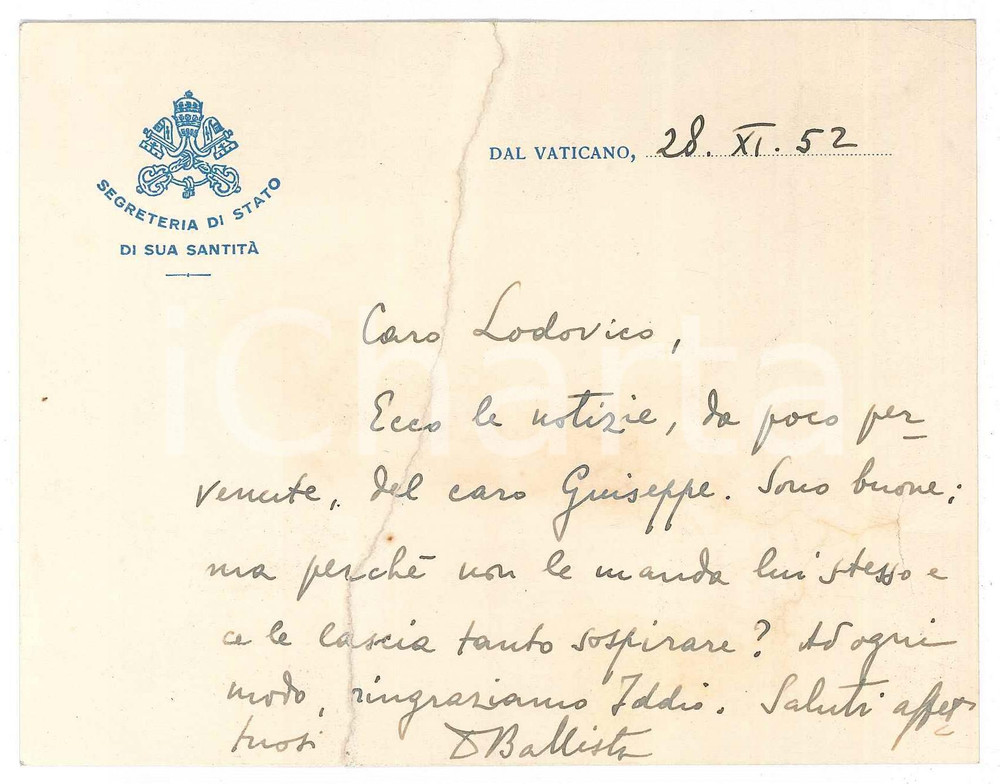 SEGRETERIA DI STATO
DI SUA SANTITÀ
DAL VATICANO, 28. XI. 52
Caro Lodovico,
Ecco le notizie, da poco per-
venute, del caro Giuseppe. Sono buone;
ma perchè non le manda lui stesso e
ce le lascia tanto sospirare? Ad ogni
modo, ringraziamo Iddio. Saluti affet-
tuosi
iCharta